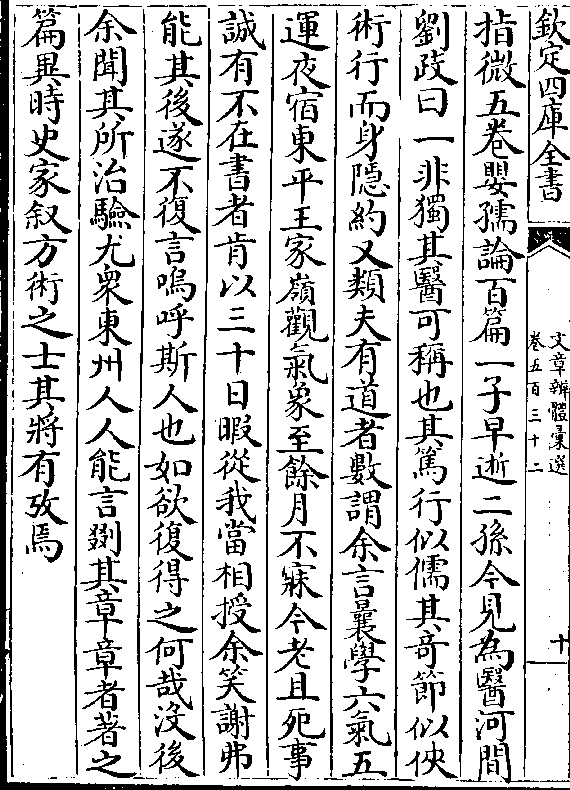 欽定四庫全書
文章辨體彙選
卷五百三十二
十
指微五卷嬰孺論百篇一子早逝二孫今見為醫河間
劉跂曰一非獨其醫可稱也其篤行似儒其奇節似俠
術行而身隠約又類夫有道者數謂余言曩學六氣五
運夜宿東平王家嶺觀氣象至餘月不寐今老且死事
誠有不在書者肯以三十日暇從我當相授余笑謝弗
能其後遂不復言嗚呼斯人也如欲復得之何哉沒後
余聞其所治驗尤衆東州人人能言剟其章章者著之
篇異時史家叙方術之士其將有攷焉